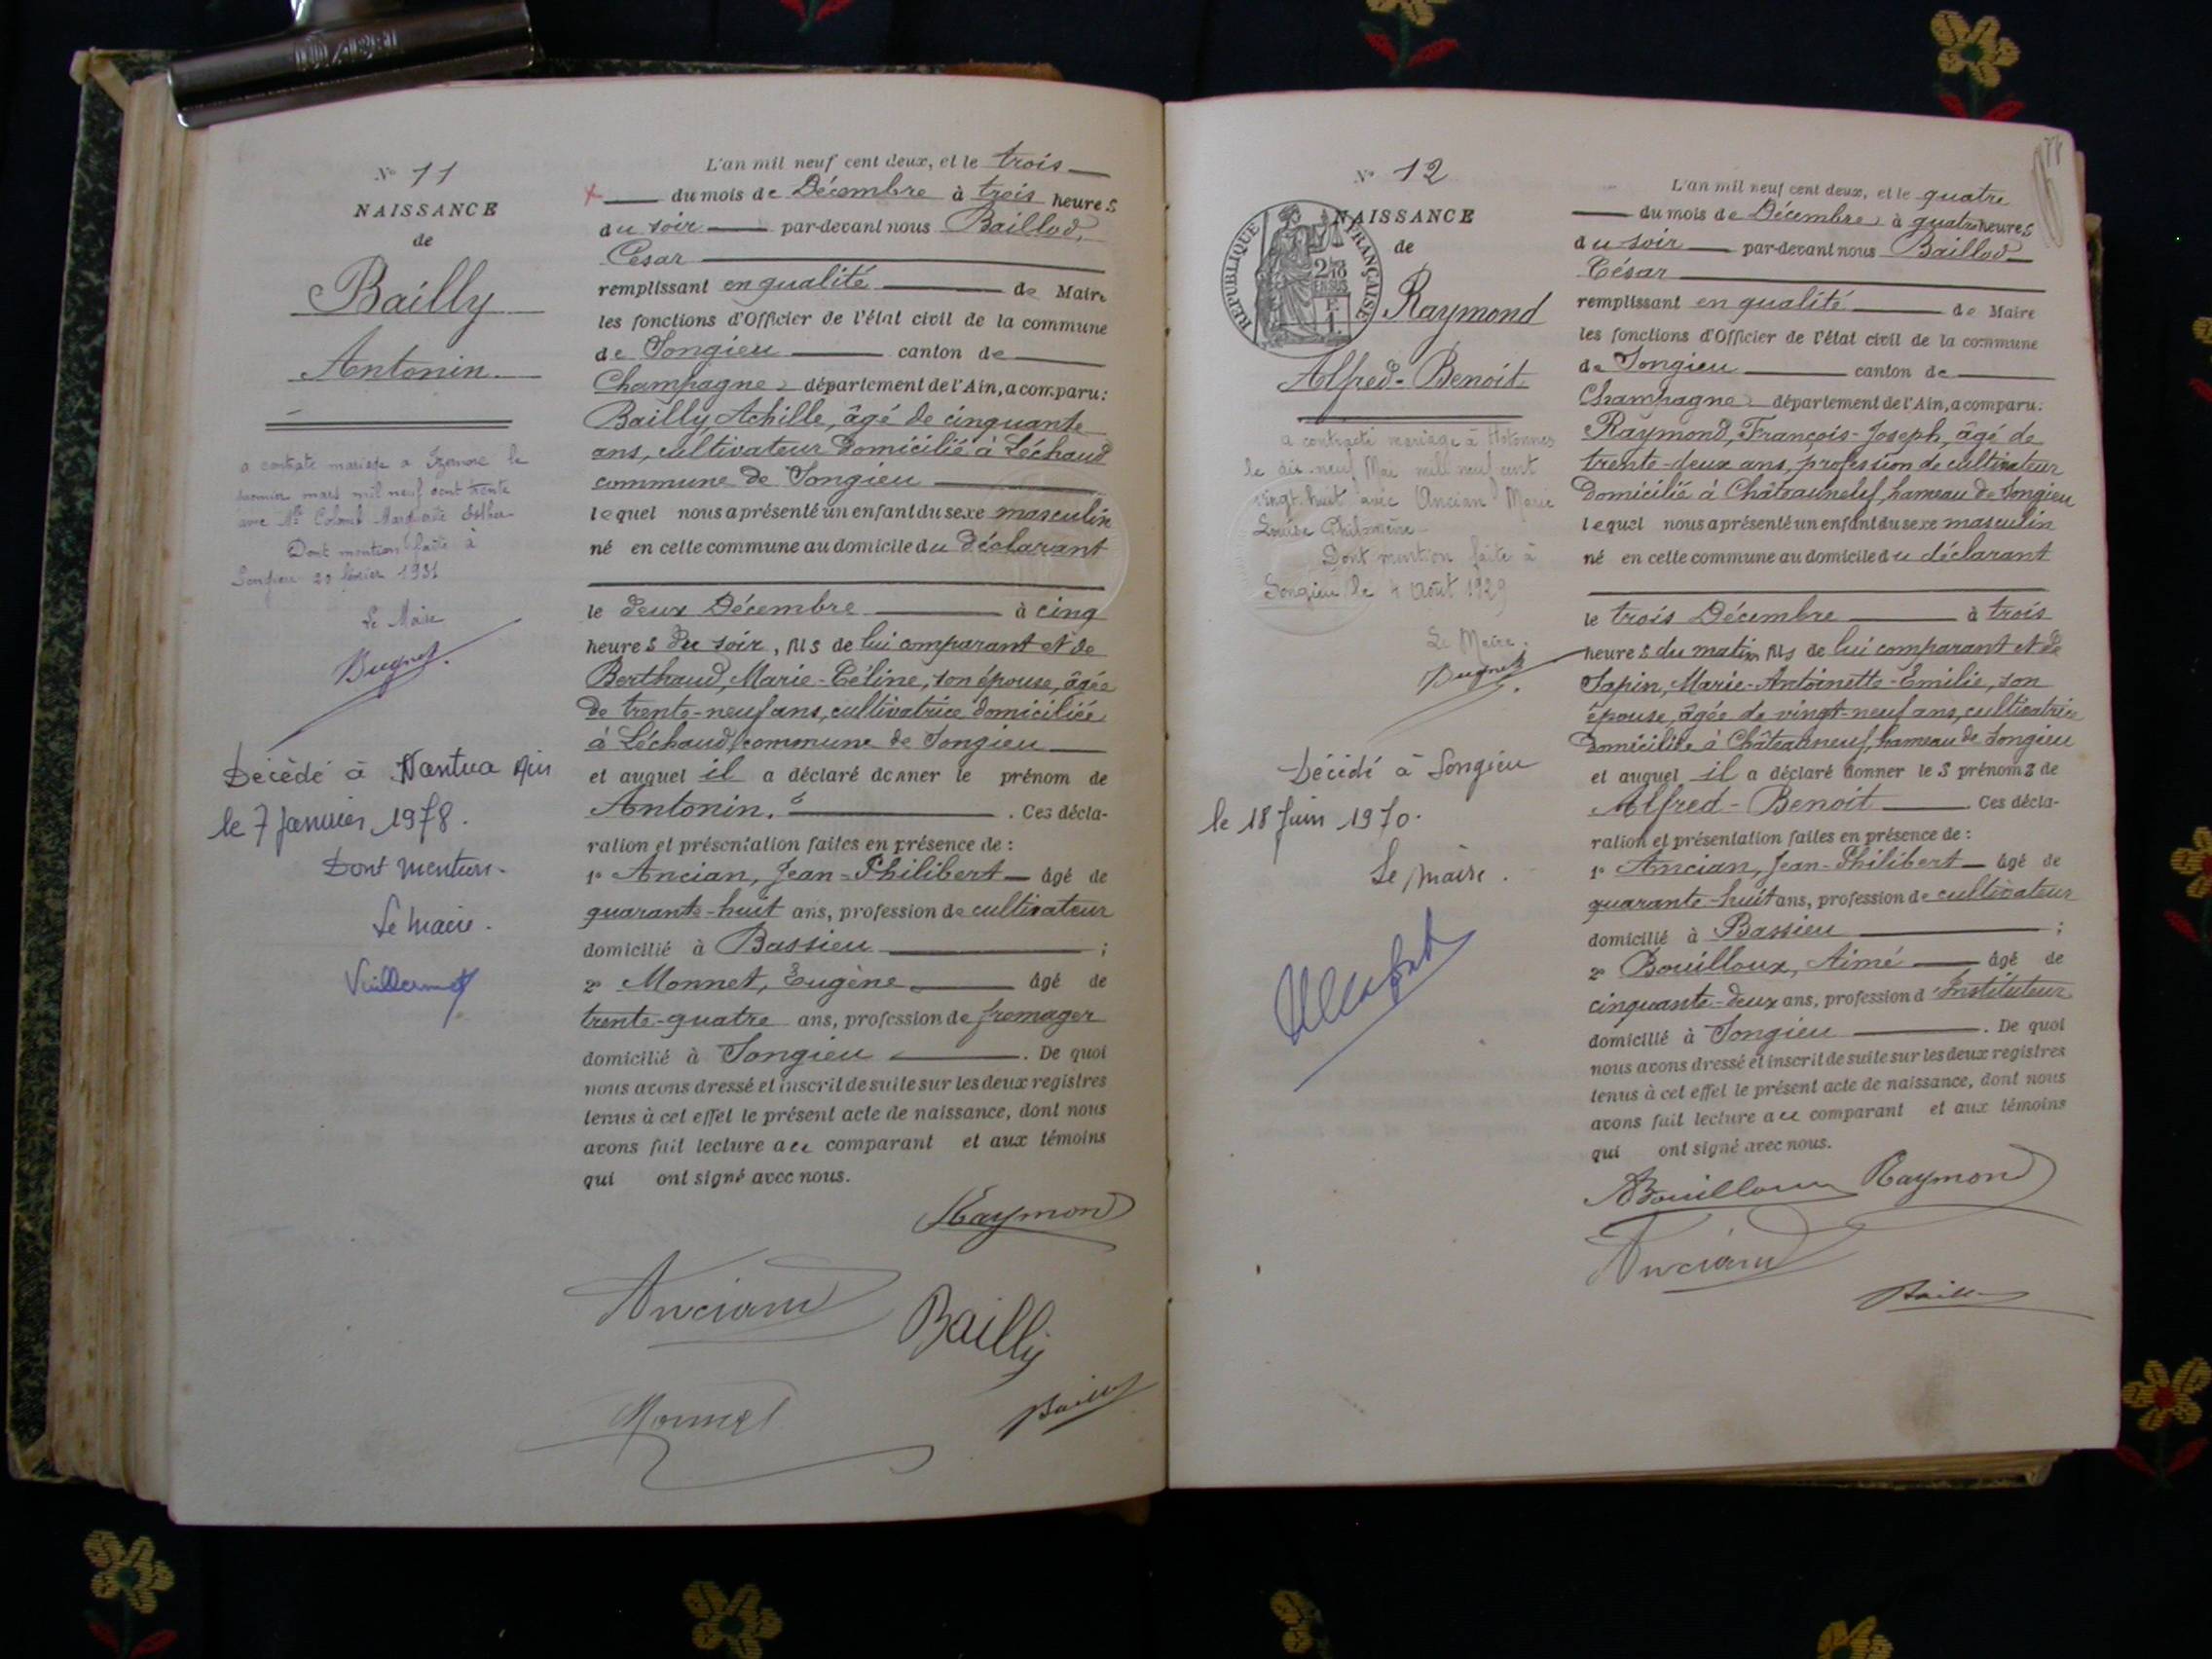 N° 11
NAISSANCE
de
Bailly
Antonin
a contracté mariage a Izernore le
mars mil neuf cent trente
avec Mlle Colomb Marguerite Esther
Dont mention faite à
Songieu 20 février 1931
Le Maire
Dugnet
Décédé à Nantua Ain
le 7 Janvier 1978.
Dont mention.
Le maire.
L'an mil neuf cent deux, et le trois
du mois de Décembre à trois heures
du soir par-devant nous Baillod,
César
remplissant en qualité de Maire
les fonctions d'Officier de l'état civil de la commune
de Songieu canton de
Champagne département de l'Ain, a comparu:
Bailly, Achille, âgé de cinquante
ans, cultivateur domicilié à Léchaud
commune de Songieu
lequel nous a présenté un enfant du sexe masculin
né en cette commune au domicile du déclarant
le deux Décembre à cinq
heures du soir, fils de lui comparant et de
Berthaud, Marie-Céline, son épouse, âgée
de trente-neuf ans, cultivatrice domiciliée
à Léchaud, commune de Songieu
et auquel il a déclaré donner le prénom de
Antonin. . Ces décla-
ration et présentation faites en présence de :
1° Ancian, Jean-Philibert âgé de
quarante-huit ans, profession de cultivateur
domicilié à Bassieu ;
2° Monnet, Eugène âgé de
trente-quatre ans, profession de fromager
domicilié à Songieu . De quoi
nous avons dressé et inscrit de suite sur les deux registres
tenus à cet effet le présent acte de naissance, dont nous
avons fait lecture au comparant et aux témoins
qui ont signé avec nous.
Raymond
Anciand
Bailly
Monnet
N° 12
NAISSANCE
de
RÉPUBLIQUE FRANÇAISE
Raymond
Alfred-Benoit
a contracté mariage à Hotonnes
le dix-neuf Mai mil neuf cent
vingt-huit avec Ancian Marie
Louise Philomène
Dont mention faite à
Songieu le 4 Août 1929
Le Maire.
Dugnet
Décédé à Songieu
le 18 Juin 1970.
Le maire.
L'an mil neuf cent deux, et le quatre
du mois de Décembre à quatre heures
du soir par-devant nous Baillod
César
remplissant en qualité de Maire
les fonctions d'Officier de l'état civil de la commune
de Songieu canton de
Champagne département de l'Ain, a comparu:
Raymond, François-Joseph, âgé de
trente-deux ans, profession de cultivateur
domicilié à Châteauneuf, hameau de Songieu
lequel nous a présenté un enfant du sexe masculin
né en cette commune au domicile du déclarant
le trois Décembre à trois
heures du matin fils de lui comparant et de
Sapin, Marie-Antoinette-Emilie, son
épouse, âgée de vingt-neuf ans, cultivatrice
domiciliée à Châteauneuf, hameau de Songieu
et auquel il a déclaré donner les prénoms de
Alfred-Benoit . Ces décla-
ration et présentation faites en présence de :
1° Ancian, Jean-Philibert âgé de
quarante-huit ans, profession de cultivateur
domicilié à Bassieu ;
2° Bouilloux, Aimé âgé de
cinquante-deux ans, profession d'Instituteur
domicilié à Songieu . De quoi
nous avons dressé et inscrit de suite sur les deux registres
tenus à cet effet le présent acte de naissance, dont nous
avons fait lecture au comparant et aux témoins
qui ont signé avec nous.
ABouilloux Raymond
Anciand